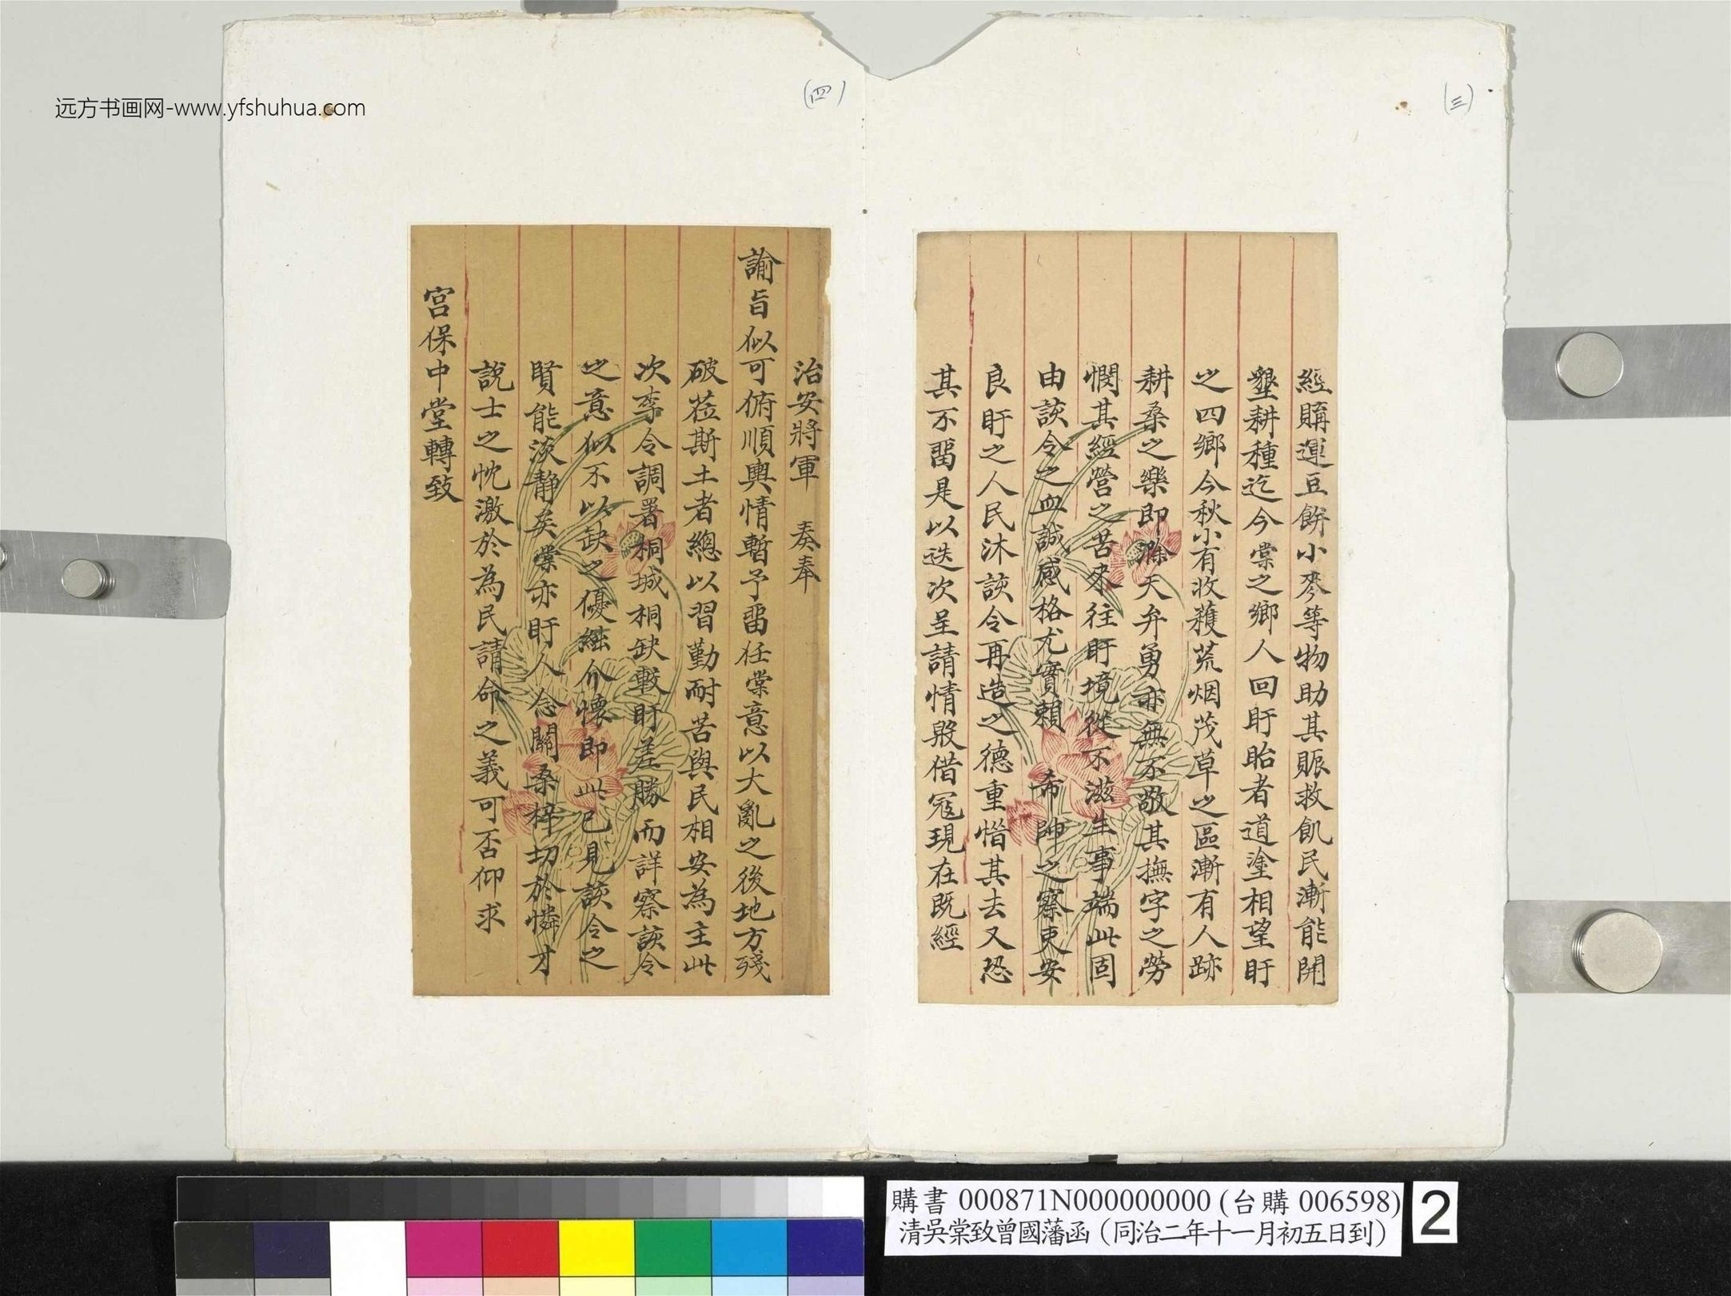 远方书画网-www.yfshuhua.com
(三)
經購運豆餅小麥等物助其賑救飢民漸能開
墾耕種迄今棠之鄉人回盱眙者道塗相望盱
之四鄉今秋小有收穫荒烟茂草之區漸有人跡
耕桑之樂即滁天弁勇亦無不敬其撫字之勞
憫其經營之苦來往盱境從不滋生事端此固
由該令之血誠感格尤實賴 希帥之察吏安
良盱之人民沐該令再造之德重惜其去又恐
其不畱是以迭次呈請情殷借寇現在既經
(四)
治安將軍 奏奉
諭旨似可俯順輿情暫予畱任棠意以大亂之後地方殘
破莅斯土者總以習勤耐苦與民相安為主此
次李令調署桐城桐缺較盱差勝而詳察該令
之意似不以缺之優絀介懷即此已見該令之
賢能淡靜矣棠亦盱人念關桑梓切於憐才
說士之忱激於為民請命之義可否仰求
宮保中堂轉致
購書 000871N000000000 (台購 006598)
清吳棠致曾國藩函 (同治二年十一月初五日到)
2